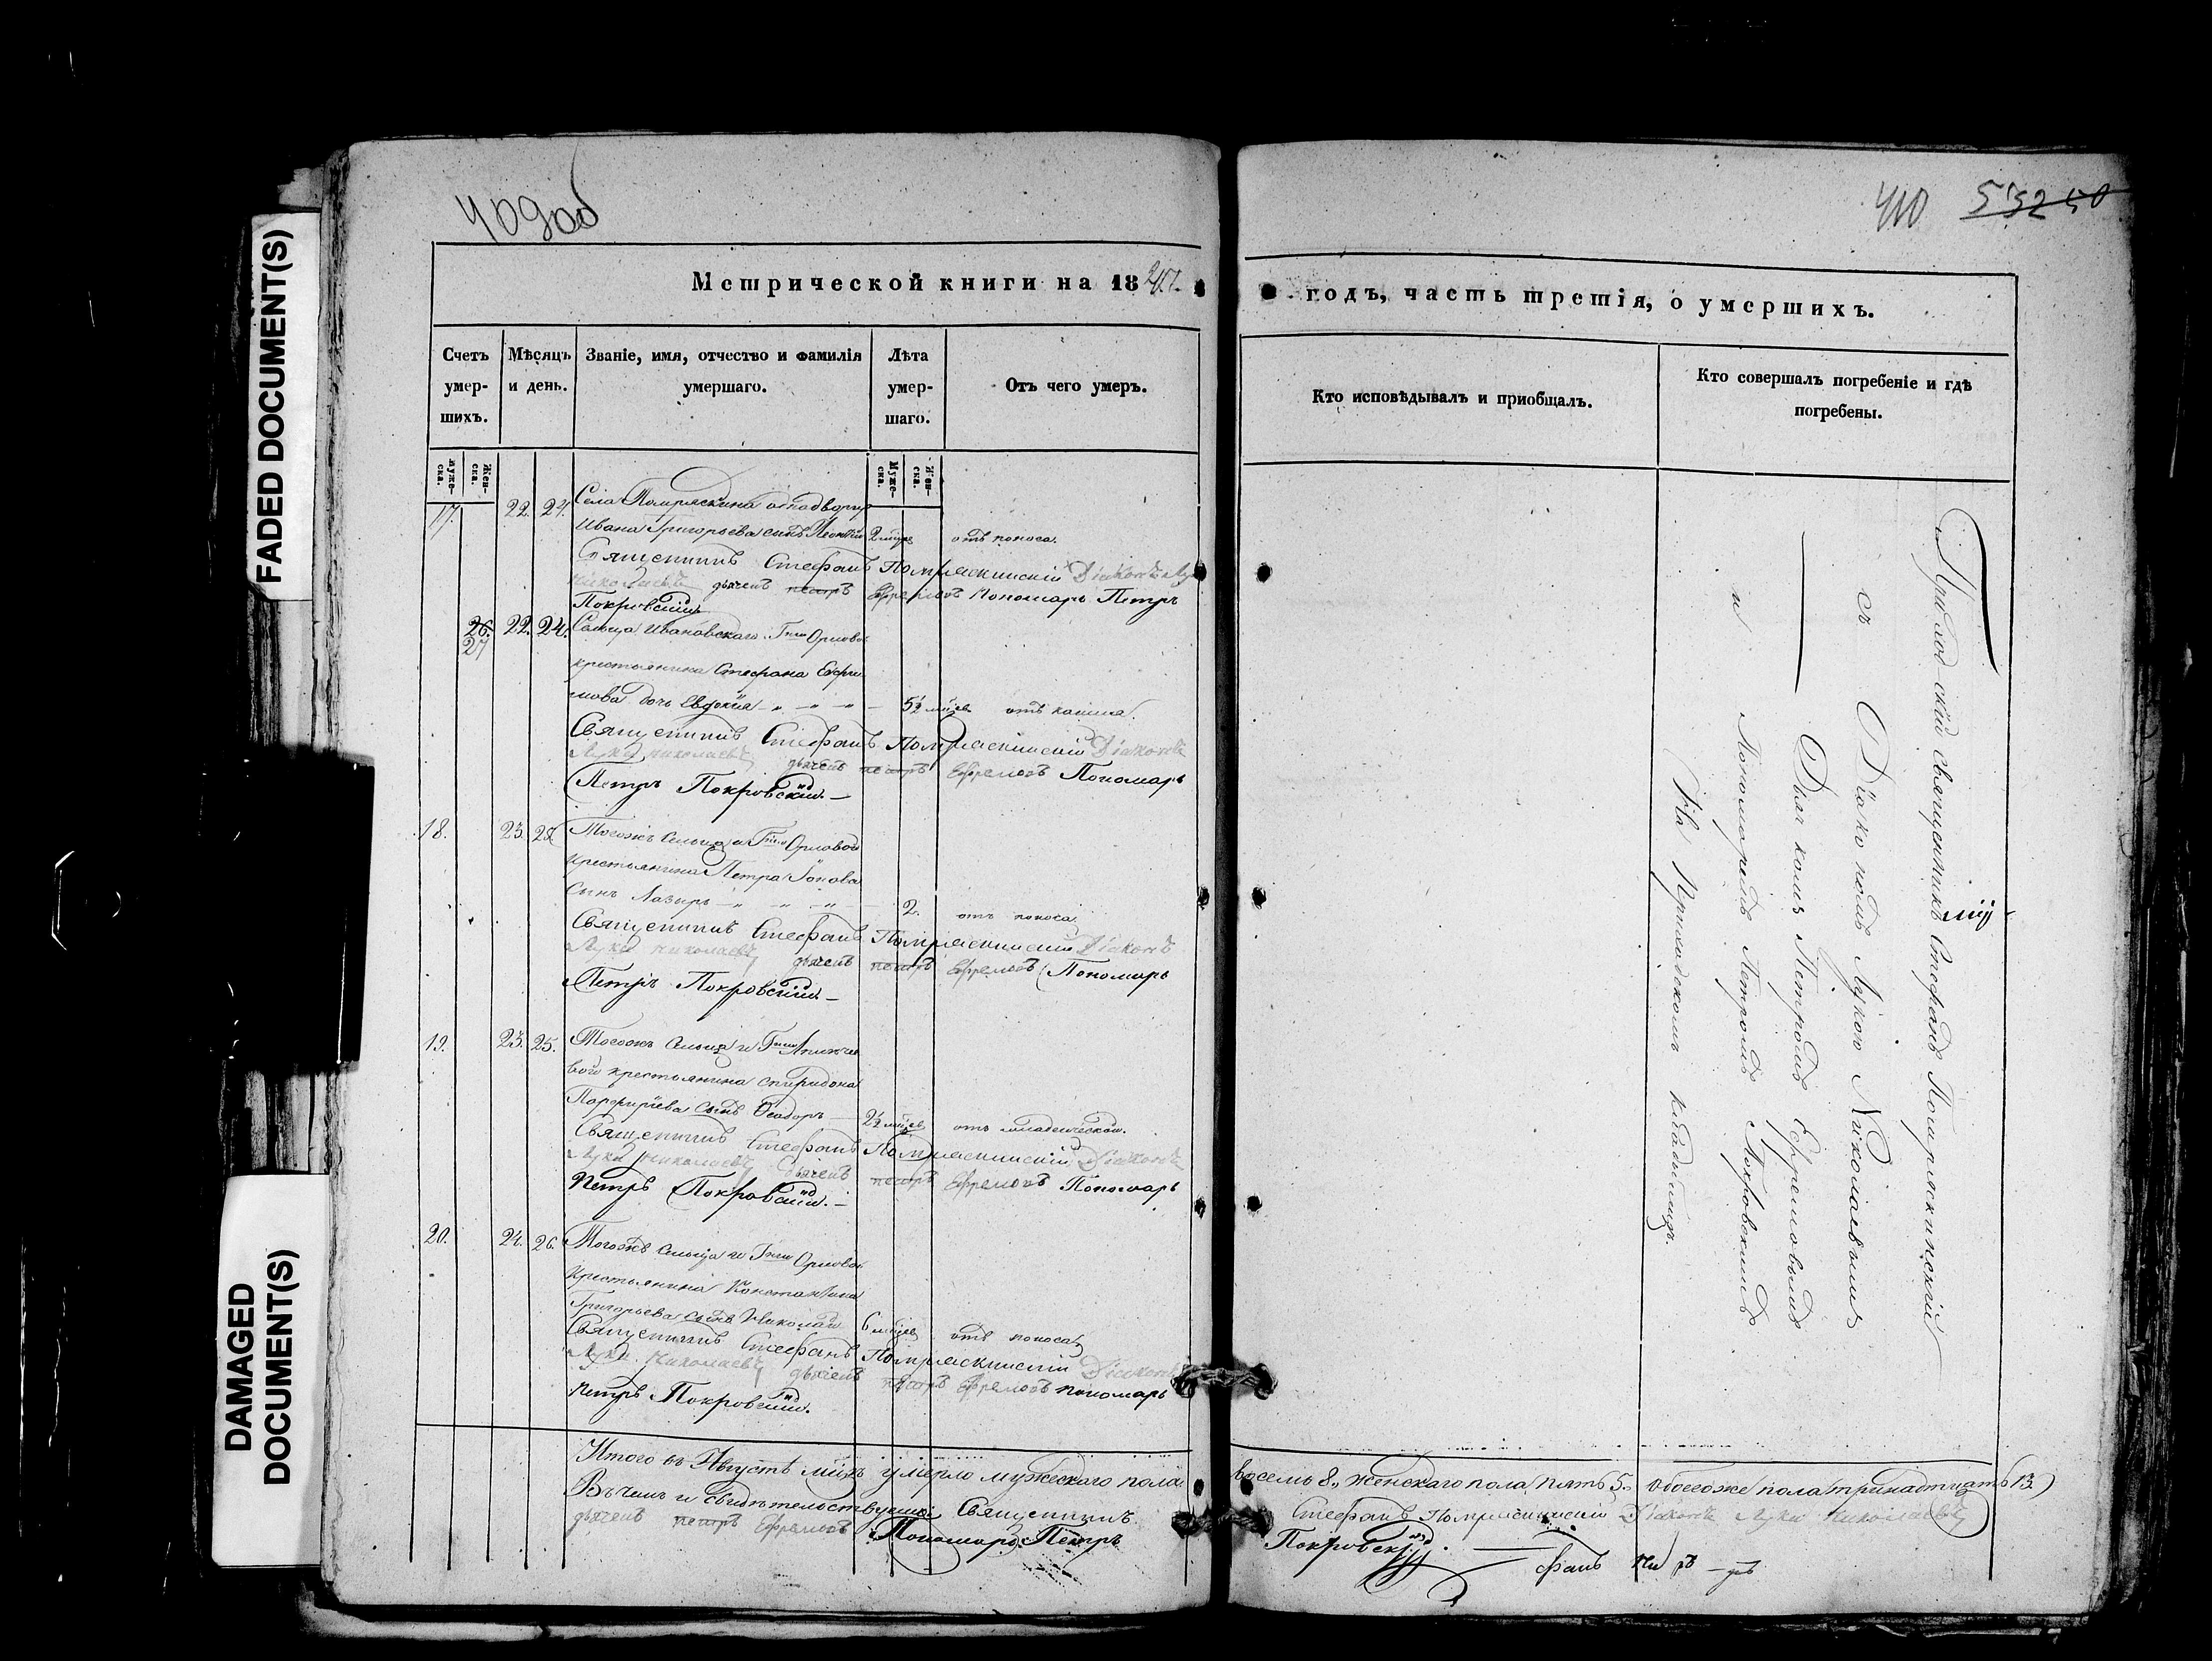 FADED DOCUMENT(S)
DAMAGED DOCUMENT(S)
409об
410 55250
Метрической книги на 18
годъ, часть третія, о умершихъ.
Счетъ умер-шихъ.
Мѣсяцъ и день.
Званіе, имя, отчество и фамилія умершаго.
Лѣта умер-шаго.
Отъ чего умеръ.
Кто исповѣдывалъ и пріобщалъ.
Кто совершалъ погребеніе и гдѣ погребены.
Муже-ска. Жен-ска.
Муже-ска. Жен-ска.
17. 22. 24. Села Помряскина
Ивана Григорьева сынъ Леонтій 2 мцев отъ поноса.
Священникъ Стефанъ Помряскинскій Діаконъ Лука
Николаевъ дьячекъ петръ Ефремовъ Пономарь Петръ
Покровскій
26. 27 22. 24. Сельца Ивановскаго Гжи Орловой
крестьянина Стефана Ефри-
мова дочь Евдокія 5½ мцев отъ кашля.
Священникъ Стефанъ Помряскинскій Діаконъ
Лука николаевъ дьячекъ петръ Ефремовъ Пономарь
Петръ Покровскій.
18. 23. 25 Тогожъ сельца и Гжи Орловой
крестьянина Петра Іонова
сынъ Лазырь 2. отъ поноса
Священникъ Стефанъ Помряскинскій Діаконъ
Лука николаевъ дьячекъ петръ Ефремовъ Пономарь
Петръ Покровскій.
19. 23. 25. Тогожъ сельца и Гжи
вой крестьянина Спиридона
Порфирїева сынъ Ѳеодоръ 2½ мцев отъ младенческой.
Священникъ Стефанъ Помряскинскій Діаконъ
Лука николаевъ дьячекъ петръ Ефремовъ Пономарь
Петръ Покровскій.
20. 24. 26. Тогожъ сельца и Гжи Орловой
крестьянина Константина
Григорьева сынъ Николай 6 мцев отъ поноса
Священникъ Стефанъ Помряскинскій Діаконъ
Лука николаевъ дьячекъ петръ Ефремовъ пономарь
петръ Покровскій.
Приходскій священникъ Стефанъ Помряскинскій
съ Діакономъ Лукою Николаевымъ
Дьячкомъ Петромъ Ефремовымъ
и Пономаремъ Петромъ Покровскимъ
На Приходскомъ кладбищѣ.
Итого въ Августѣ мцѣ умерло мужескаго пола восемь 8, женскаго пола пять 5, обоегоже пола тринадцать 13
Въ чемъ и свидѣтельствуемъ Священникъ Стефанъ Помряскинскій Діаконъ Лука николаевъ
дьячекъ петръ Ефремовъ Пономарь Петръ Покровскій
фанъ